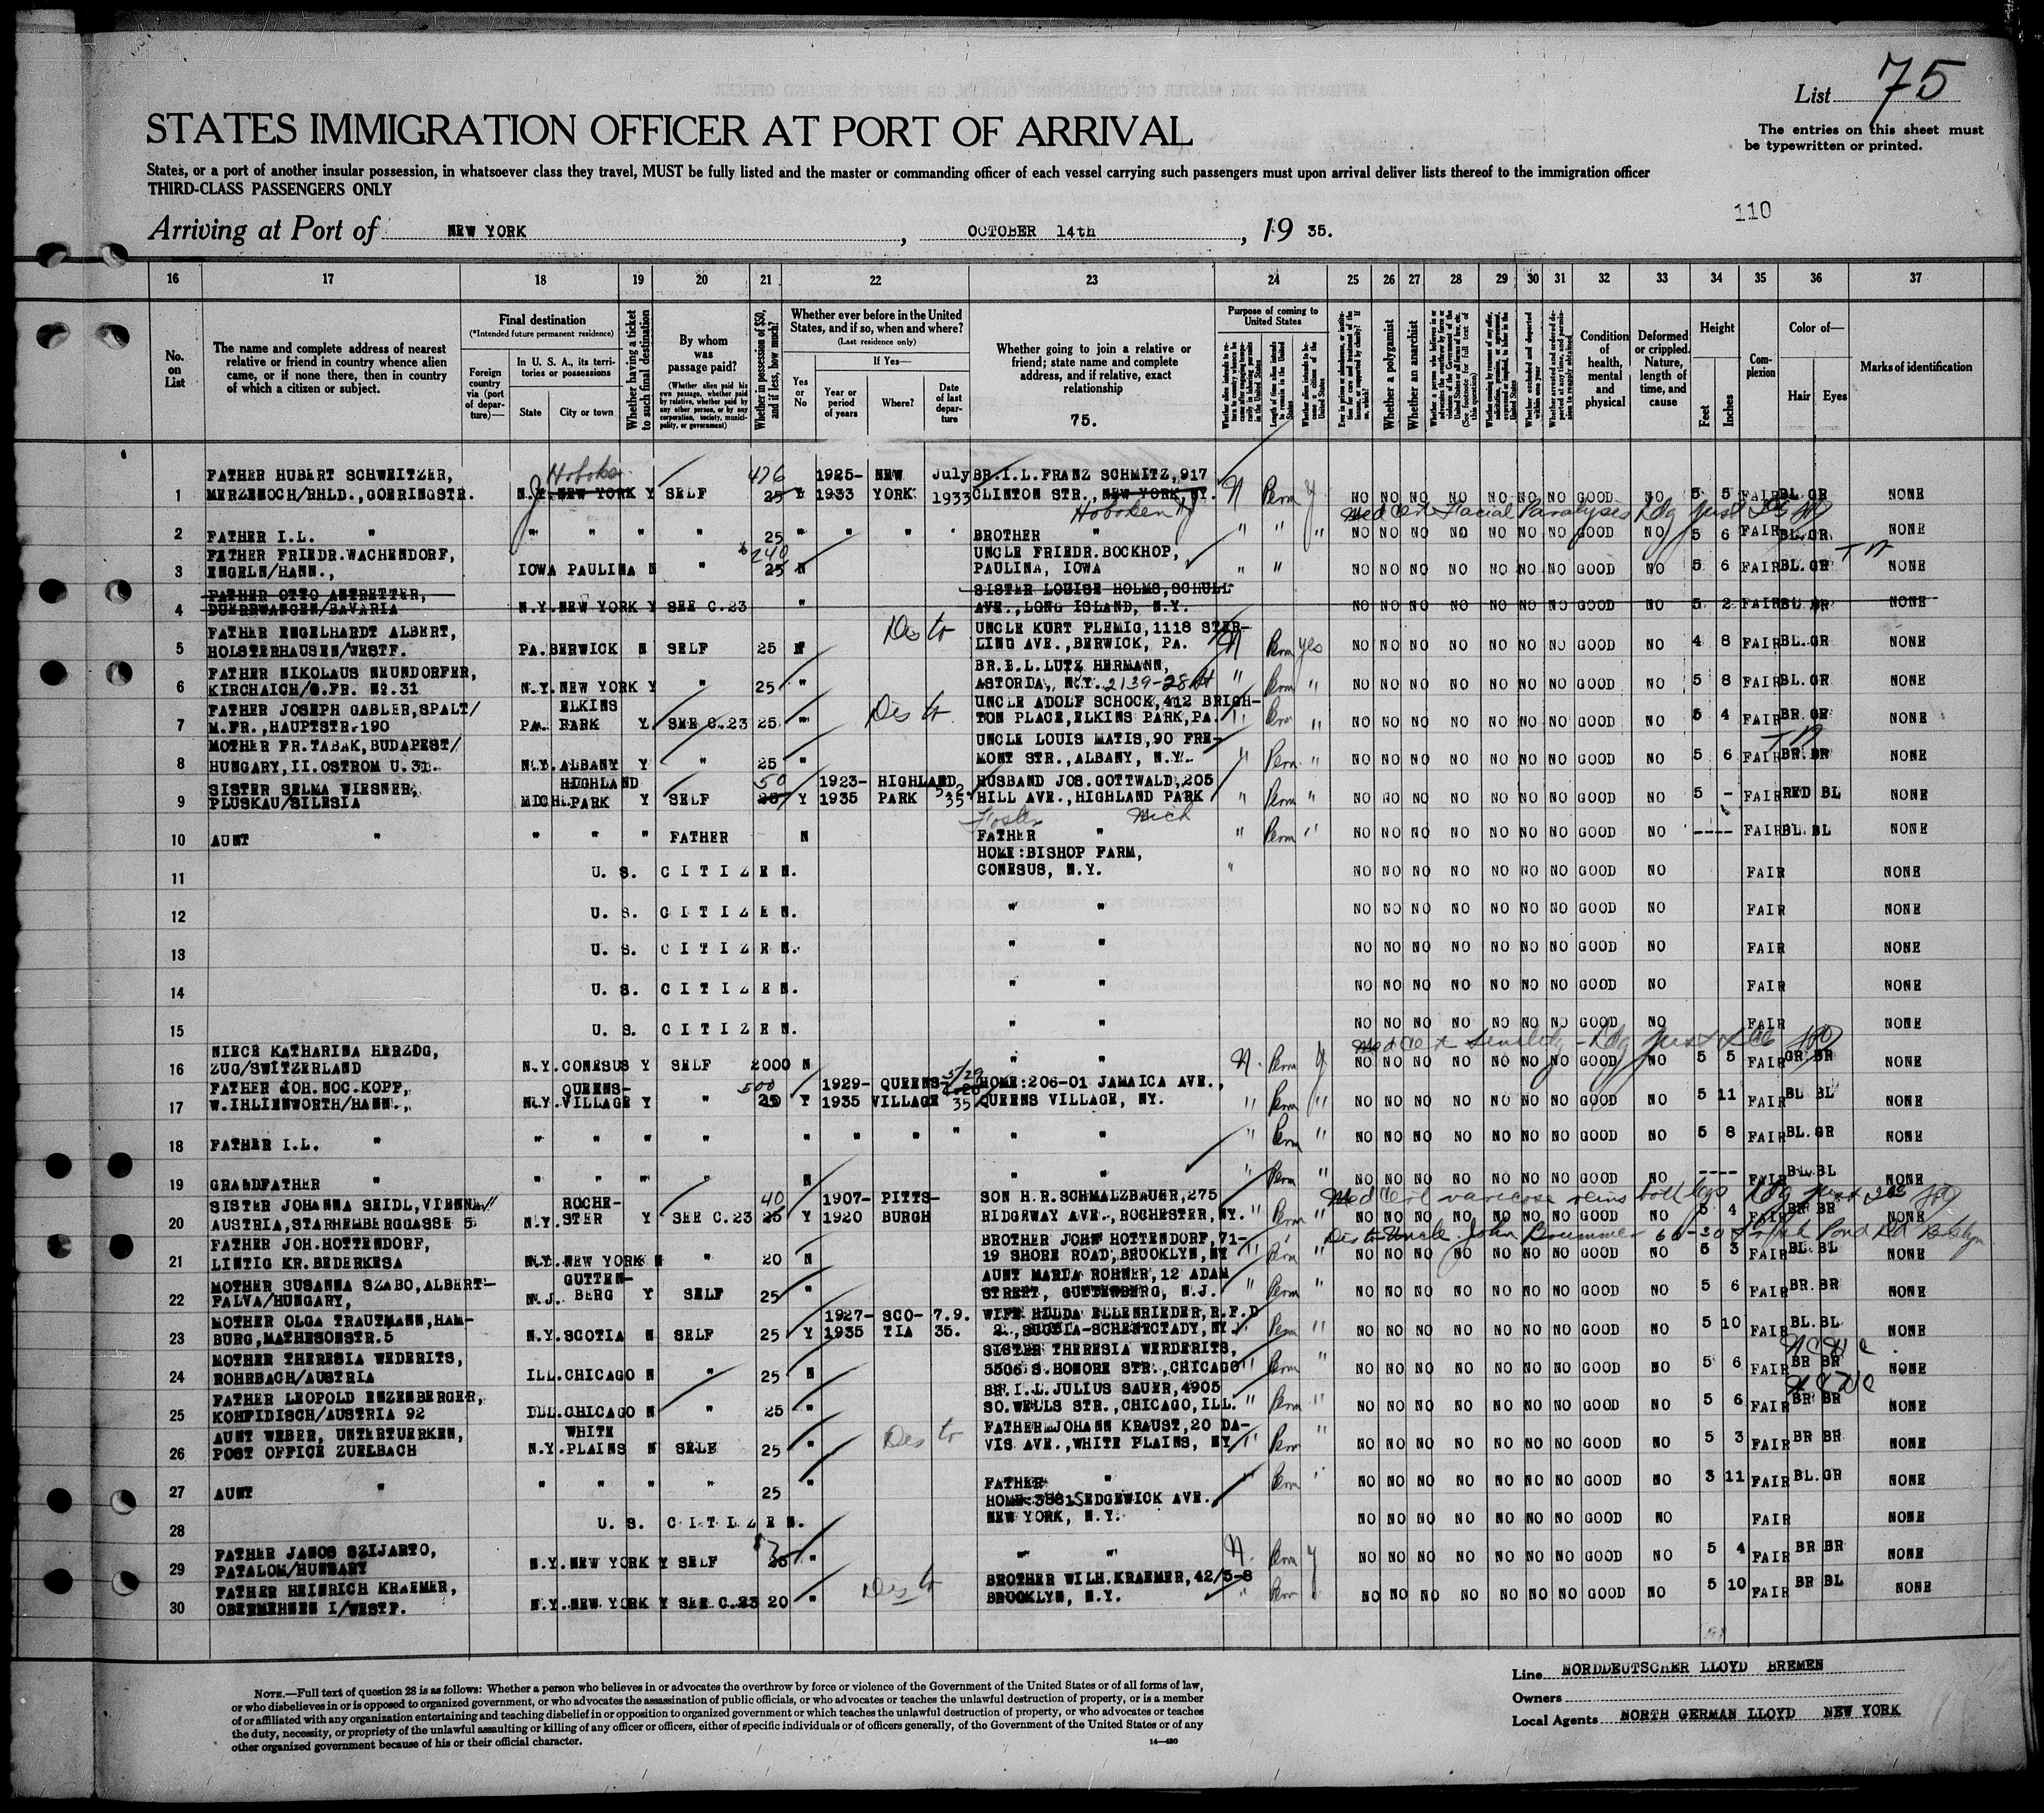 List 75
STATES IMMIGRATION OFFICER AT PORT OF ARRIVAL
The entries on this sheet must
be typewritten or printed.
States, or a port of another insular possession, in whatsoever class they travel, MUST be fully listed and the master or commanding officer of each vessel carrying such passengers must upon arrival deliver lists thereof to the immigration officer
THIRD-CLASS PASSENGERS ONLY
110
Arriving at Port of NEW YORK, OCTOBER 14th, 19 35.
16 17 18 19 20 21 22 23 24 25 26 27 28 29 30 31 32 33 34 35 36 37
No. on List
The name and complete address of nearest relative or friend in country whence alien came, or if none there, then in country of which a citizen or subject.
Final destination
(*Intended future permanent residence)
Foreign country via (port of departure)—
In U. S. A., its territories or possessions
State City or town
Whether having a ticket to such final destination
By whom was passage paid?
(Whether alien paid his own passage, whether paid by relative, whether paid by any other person, or by any corporation, society, municipality, or government)
Whether in possession of $50, and if less, how much?
Whether ever before in the United States, and if so, when and where?
(Last residence only)
Yes or No
If Yes—
Year or period of years Where? Date of last departure
Whether going to join a relative or friend; state name and complete address, and if relative, exact relationship
75.
Purpose of coming to United States
Whether a polygamist
Whether an anarchist
Condition of health, mental and physical
Deformed or crippled. Nature, length of time, and cause
Height
Feet Inches
Complexion
Color of—
Hair Eyes
Marks of identification
FATHER HUBERT SCHWEITZER, Hoboken 476 1925- NEW July BR.I.L.FRANZ SCHMITZ,917
1 MERZENOCH/RHLD.,GOERINGSTR. N.Y. NEW YORK Y SELF 25 Y 1933 YORK 1933 CLINTON STR., NEW YORK, NY. N Perm y NO NO NO NO NO NO NO GOOD NO 5 5 FAIR BL GR NONE
Hoboken NJ Med Cert Facial Paralysis
2 FATHER I.L. " " " " " 25 " " " " BROTHER " " " " NO NO NO NO NO NO NO GOOD NO 5 6 FAIR BL.GR NONE
FATHER FRIEDR.WACHENDORF, 240 UNCLE FRIEDR.BOCKHOP,
3 ENGELN/HANN., IOWA PAULINA N " 25 N PAULINA, IOWA " " NO NO NO NO NO NO NO GOOD NO 5 6 FAIR BL.GR NONE
FATHER OTTO ANTRETTER, SISTER LOUISE HOLMS,SCHULL
4 DUERRWANGEN/BAVARIA N.Y. NEW YORK Y SEE C.23 " AVE.,LONG ISLAND, N.Y. NO NO NO NO NO NO NO GOOD NO 5 2 FAIR NONE
FATHER ENGELHARDT ALBERT, Des to UNCLE KURT FLEMIG,1118 STER-
5 HOLSTERHAUSEN/WESTF. PA. BERWICK N SELF 25 N LING AVE.,BERWICK, PA. N Perm yes NO NO NO NO NO NO NO GOOD NO 4 8 FAIR BL.GR NONE
FATHER NIKOLAUS NEUNDORFER, BR.E.L.LUTZ HERMANN,
6 KIRCHAICH/O.FR. No.31 N.Y. NEW YORK Y " 25 " ASTORIA, N.Y. 2139-28 St " Perm " NO NO NO NO NO NO NO GOOD NO 5 8 FAIR BL.GR NONE
FATHER JOSEPH GABLER,SPALT/ ELKINS Des to UNCLE ADOLF SCHOCK,412 BRIGH-
7 M.FR.,HAUPTSTR.190 PA. PARK Y SEE C.23 25 " TON PLACE,ELKINS PARK,PA. " Perm " NO NO NO NO NO NO NO GOOD NO 5 4 FAIR BR.GR NONE
MOTHER FR.TABAK,BUDAPEST/ UNCLE LOUIS MATIS,90 FRE-
8 HUNGARY,II.OSTROM U.31. N.Y. ALBANY Y " 25 " MONT STR.,ALBANY, N.Y. " Perm " NO NO NO NO NO NO NO GOOD NO 5 6 FAIR BR.BR NONE
SISTER SELMA WIESNER, HIGHLAND 50 1923- HIGHLAND HUSBAND JOS.GOTTWALD,205
9 PLUSKAU/SILESIA MICH. PARK Y SELF 25 Y 1935 PARK 35 HILL AVE.,HIGHLAND PARK " Perm " NO NO NO NO NO NO NO GOOD NO 5 - FAIR RED BL NONE
Foster Mich
10 AUNT " " " " FATHER N FATHER " " Perm " NO NO NO NO NO NO NO GOOD NO ---- FAIR BL. BL NONE
HOME:BISHOP FARM,
11 U. S. CITIZEN. CONESUS, N.Y. " NO NO NO NO NO NO NO GOOD NO FAIR NONE
12 U. S. CITIZEN. " " NO NO NO NO NO NO NO GOOD NO FAIR NONE
13 U. S. CITIZEN. " " NO NO NO NO NO NO NO GOOD NO FAIR NONE
14 U. S. CITIZEN. " " NO NO NO NO NO NO NO GOOD NO FAIR NONE
15 U. S. CITIZEN. " " NO NO NO NO NO NO NO GOOD NO FAIR NONE
NIECE KATHARINA HERZOG, Med Cert Senility
16 ZUG/SWITZERLAND N.Y. CONESUS Y SELF 2000 N " " N. Perm y NO NO NO NO NO NO NO GOOD NO 5 5 FAIR GR.BR NONE
FATHER JOH.NOC.KOPF, QUEENS- 500 1929- QUEENS- 5/29 HOME:206-01 JAMAICA AVE.,
17 W.IHLIENWORTH/HANN., N.Y. VILLAGE Y " 25 Y 1935 VILLAGE 35 QUEENS VILLAGE, NY. " Perm " NO NO NO NO NO NO NO GOOD NO 5 11 FAIR BL BL NONE
18 FATHER I.L. " " " " " " " " " " " " Perm " NO NO NO NO NO NO NO GOOD NO 5 8 FAIR BL.GR NONE
19 GRANDFATHER " " " " N " " " Perm " NO NO NO NO NO NO NO GOOD NO ---- FAIR BL.BL NONE
SISTER JOHANNA SEIDL,VIENNA/ ROCHE- 40 1907- PITTS- SON H.R.SCHMALZBAUER,275 Med Cert varicose veins both legs
20 AUSTRIA,STARHEMBERGGASSE 5 N.Y. STER Y SEE C.23 25 Y 1920 BURGH RIDGEWAY AVE.,ROCHESTER,NY. " Perm " NO NO NO NO NO NO NO GOOD NO 5 4 FAIR BR BR NONE
FATHER JOH.HOTTENDORF, BROTHER JOHN HOTTENDORF,71- Des to Uncle John Brummer 66-30 Fresh Pond Rd Bklyn
21 LINTIG KR.BEDERKESA N.Y. NEW YORK N " 20 N 19 SHORE ROAD,BROOKLYN,NY " Perm " NO NO NO NO NO NO NO GOOD NO 5 3 FAIR BL. BL NONE
MOTHER SUSANNA SZABO,ALBERT- GUTTEN- AUNT MARIA ROHNER,12 ADAM
22 FALVA/HUNGARY, N.J. BERG Y SELF 25 " STREET, GUTTENBERG, N.J. " Perm " NO NO NO NO NO NO NO GOOD NO 5 6 FAIR BR.BR NONE
MOTHER OLGA TRAUTMANN,HAM- 1927- SCO- 7.9. WIFE HILDA ELLENRIEDER,R.F.D
23 BURG,MATHESONSTR.5 N.Y. SCOTIA N SELF 25 Y 1935 TIA 35. 2.,SCOTIA-SCHENECTADY,NY. " Perm " NO NO NO NO NO NO NO GOOD NO 5 10 FAIR BL.BL NONE
MOTHER THERESIA WEDERITS, SISTER THERESIA WERDERITS,
24 ROHRBACH/AUSTRIA ILL. CHICAGO N " 25 N 5505 S.HONORE STR.,CHICAGO " Perm " NO NO NO NO NO NO NO GOOD NO 5 6 FAIR BR BR NONE
FATHER LEOPOLD ENZENBERGER, BR.I.L.JULIUS SAUER,4905
25 KOHFIDISCH/AUSTRIA 92 ILL. CHICAGO N " 25 " SO.WELLS STR.,CHICAGO,ILL. " Perm " NO NO NO NO NO NO NO GOOD NO 5 6 FAIR BR BR NONE
AUNT WEBER, UNTERTUERKEN, WHITE Des to FATHER JOHANN KRAUST,20 DA-
26 POST OFFICE ZUELBACH N.Y. PLAINS N SELF 25 " VIS AVE.,WHITE PLAINS, NY " Perm " NO NO NO NO NO NO NO GOOD NO 5 3 FAIR BR BR NONE
27 AUNT " " " " " 25 " FATHER " " Perm " NO NO NO NO NO NO NO GOOD NO 3 11 FAIR BL.GR NONE
HOME:3881 SEDGEWICK AVE.
28 U. S. CITIZEN. NEW YORK, N.Y. NO NO NO NO NO NO NO GOOD NO FAIR NONE
FATHER JANOS SZIJARTO,
29 PATALOM/HUNGARY N.Y. NEW YORK Y SELF 25 " " " N. Perm y NO NO NO NO NO NO NO GOOD NO 5 4 FAIR BR BR NONE
FATHER HEINRICH KRAEMER, Des to BROTHER WILH.KRAEMER,42/5-8
30 OBERMEHNEN I/WESTF. N.Y. NEW YORK Y SEE C.23 20 " BROOKLYN, N.Y. " Perm " NO NO NO NO NO NO NO GOOD NO 5 10 FAIR BR BL NONE
NOTE.—Full text of question 28 is as follows: Whether a person who believes in or advocates the overthrow by force or violence of the Government of the United States or of all forms of law,
or who disbelieves in or is opposed to organized government, or who advocates the assassination of public officials, or who advocates or teaches the unlawful destruction of property, or is a member
of or affiliated with any organization entertaining and teaching disbelief in or opposition to organized government or which teaches the unlawful destruction of property, or who advocates or teaches
the duty, necessity, or propriety of the unlawful assaulting or killing of any officer or officers, either of specific individuals or of officers generally, of the Government of the United States or of any
other organized government because of his or their official character.
14—430
Line NORDDEUTSCHER LLOYD BREMEN
Owners
Local Agents NORTH GERMAN LLOYD NEW YORK